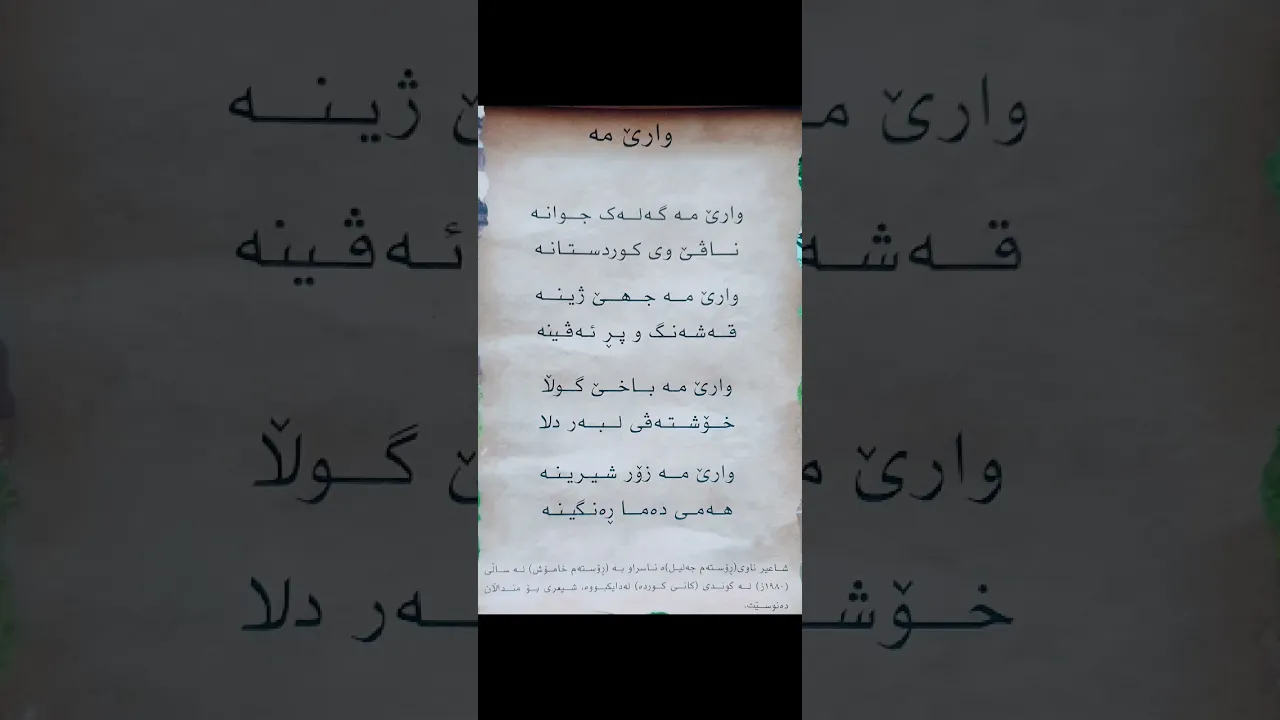 وارێ مە
وارێ مە گەلەک جوانە
ناڤێ وی کوردستانە
وارێ مە جهێ ژینە
قەشەنگ و پڕ ئەڤینە
وارێ مە باخێ گولاَ
خۆشتەڤی لبەر دلا
وارێ مە زۆر شیرینە
هەمی دەما ڕەنگینە
شاعیر ناوی(ڕۆستەم جەلیل)ە ناسراو بە (ڕۆستەم خامۆش) لە ساڵی
(١٩٨٠ز) لە گوندی (کانی کوردە) لەدایکبووە. شیعری بۆ منداڵان
دەنوسێت.